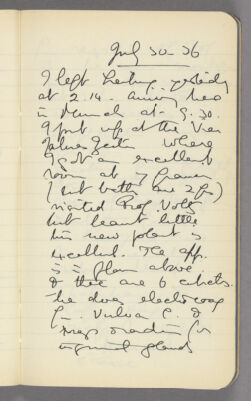 July 30-36
I left yesterday
at 2.14. arriving here
in Munich at 9.30.
I put up at the Vier
Jahreszeiten where
I got an excellent
room at 7
(but baths are 2)
visited Prof. Voltz
but learnt little
his new plant is
excellent. The app.
is in place above
& there are 6 cubicles.
he does electro coag
for Vulva C. &
for
inguinal glands